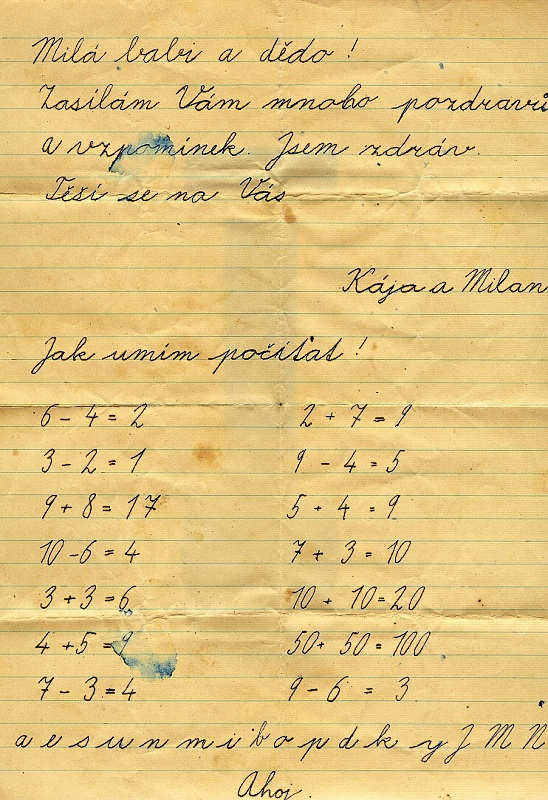 Milá babi a dědo!
Zasílám Vám mnoho pozdravů
a vzpomínek. Jsem zdráv.
Těší se na Vás
Kája a Milan
Jak umím počítat!
6 - 4 = 2 2 + 7 = 9
3 - 2 = 1 9 - 4 = 5
9 + 8 = 17 5 + 4 = 9
10 - 6 = 4 7 + 3 = 10
3 + 3 = 6 10 + 10 = 20
4 + 5 = 9 50 + 50 = 100
7 - 3 = 4 9 - 6 = 3
a e s u n m i b o p d k y J M N
Ahoj.